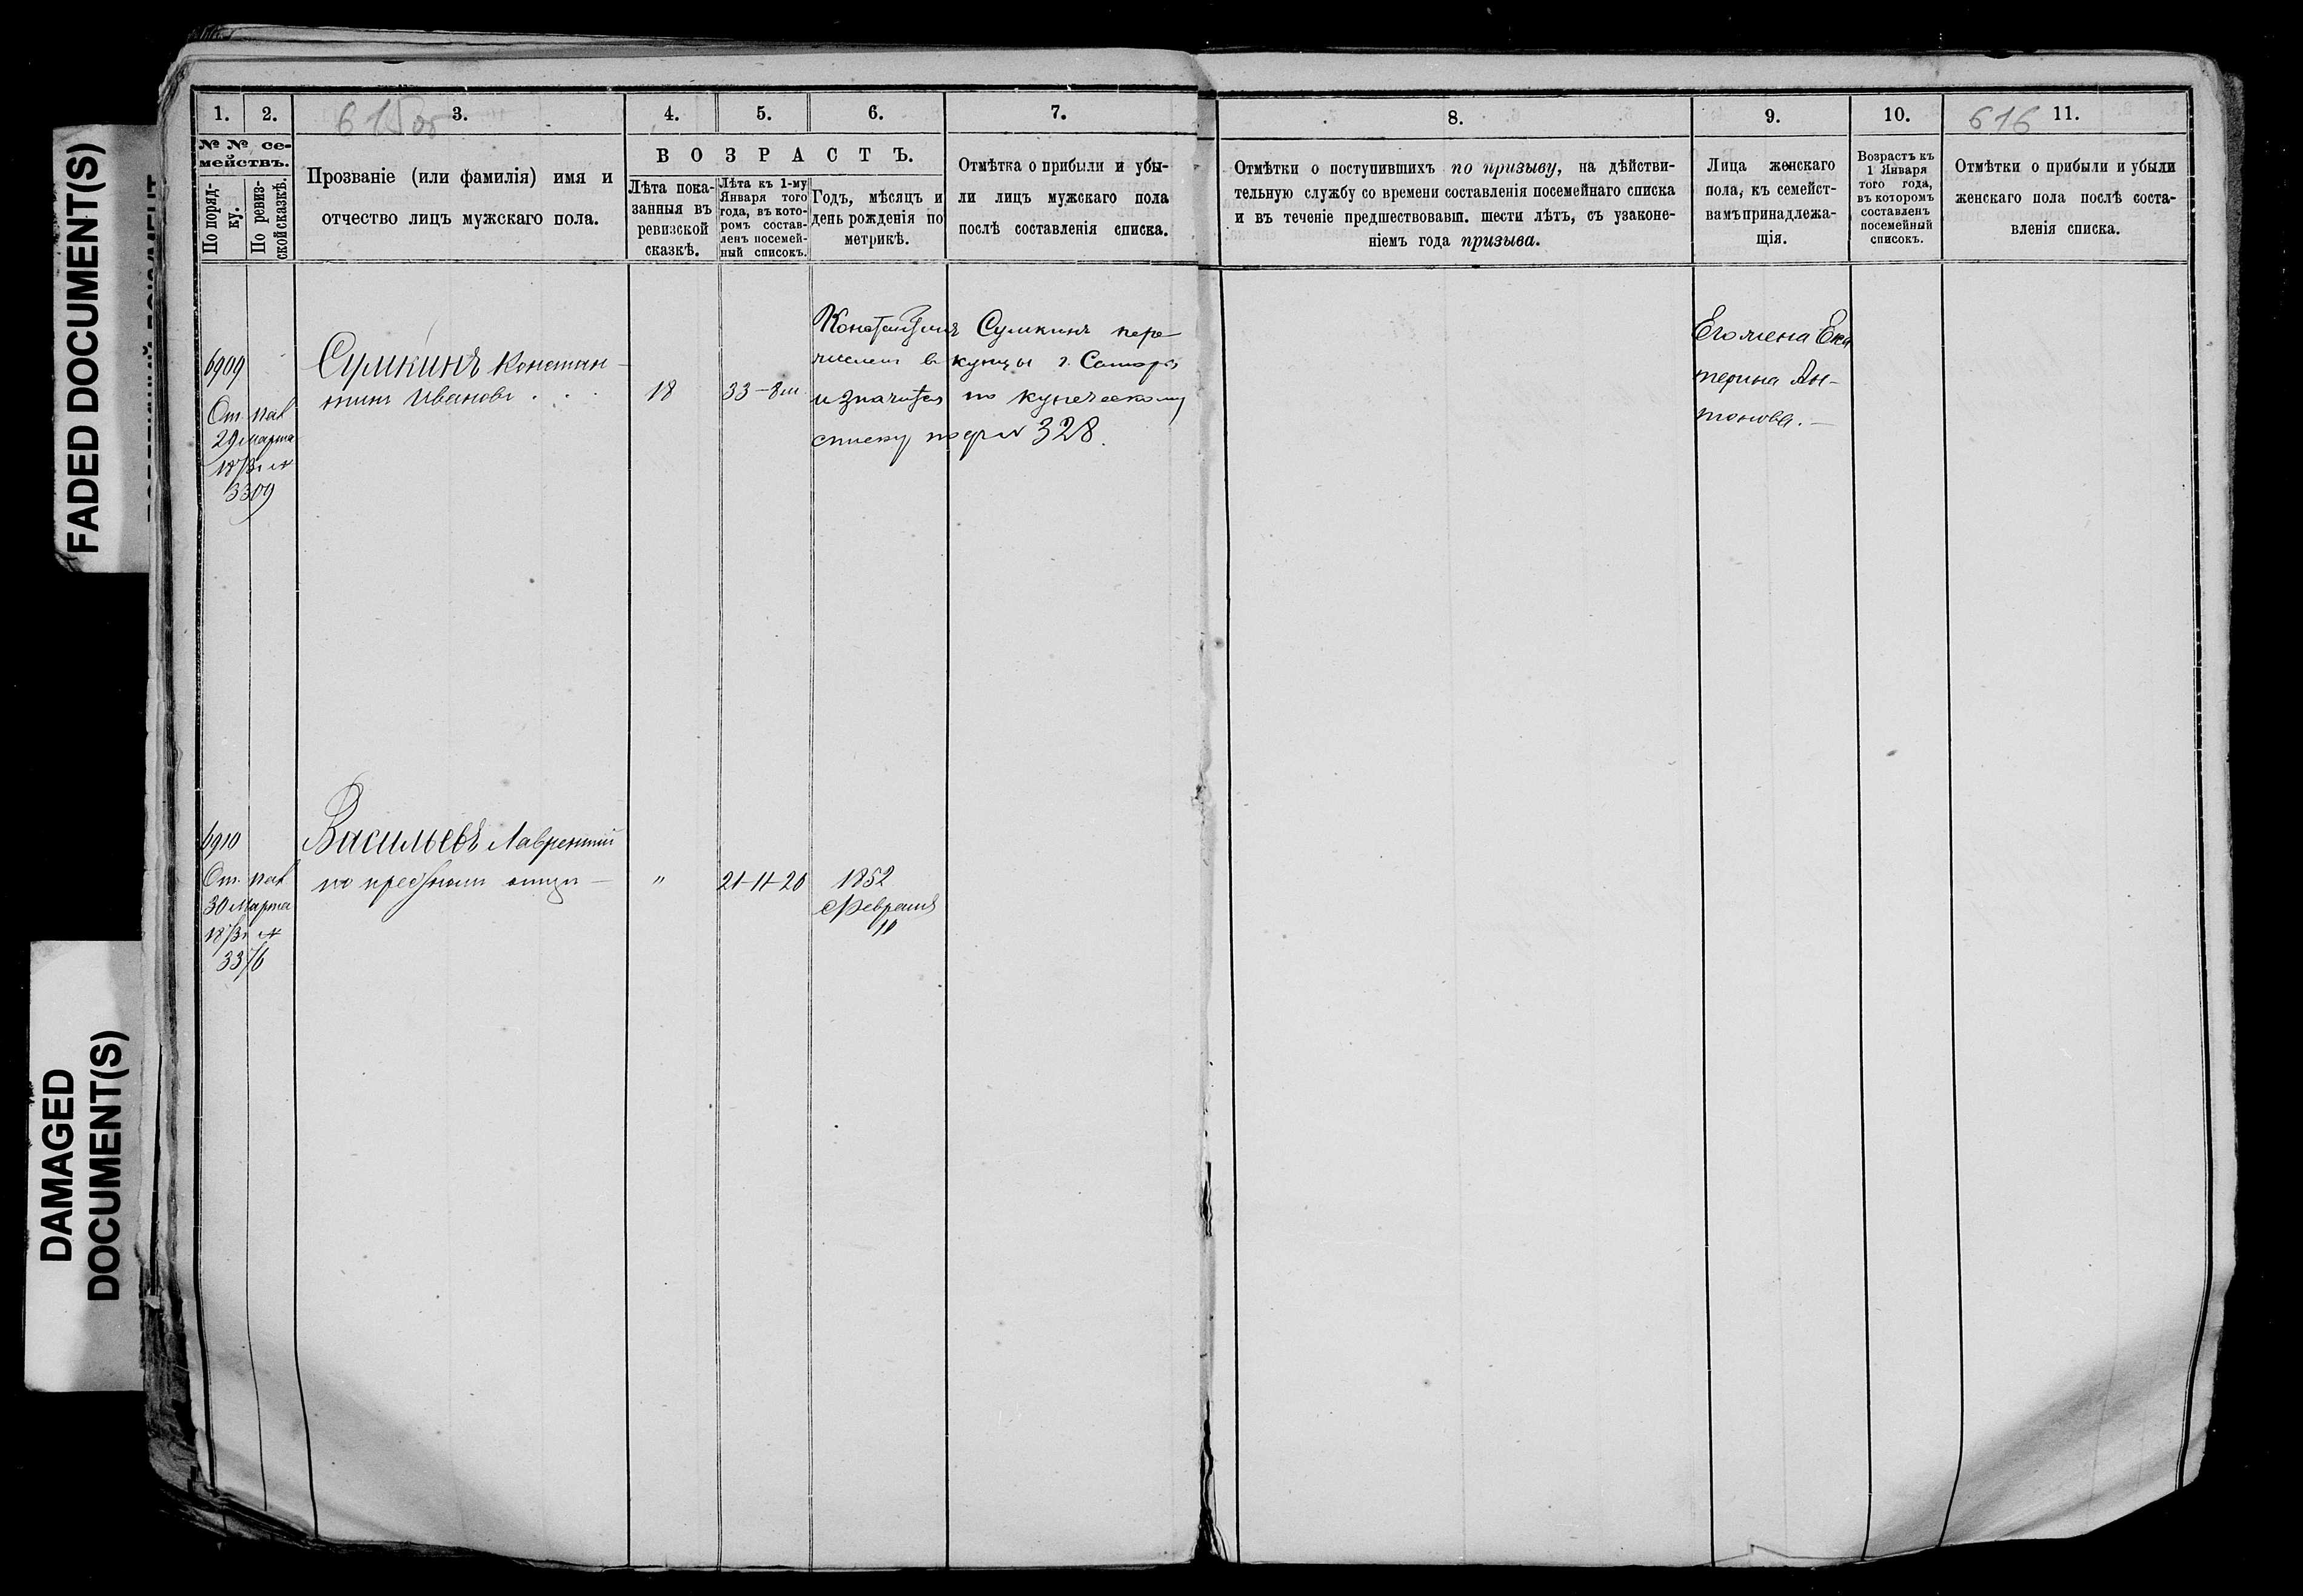 FADED DOCUMENT(S)
DAMAGED
DOCUMENT(S)
1.
2.
3.
4.
5.
6.
7.
615об
№ № се-
мействъ.
По поряд-
ку.
По ревиз-
ской сказкѣ.
Прозваніе (или фамилія) имя и
отчество лицъ мужскаго пола.
ВОЗРАСТЪ.
Лѣта пока-
занныя въ
ревизской
сказкѣ.
Лѣта къ 1-му
Января того
года, въ кото-
ромъ состав-
ленъ посемей-
ный списокъ.
Годъ, мѣсяцъ и
день рожденія по
метрикѣ.
Отмѣтка о прибыли и убы-
ли лицъ мужскаго пола
послѣ составленія списка.
8.
9.
10.
11.
616
Отмѣтки о поступившихъ по призыву, на дѣйстви-
тельную службу со времени составленія посемейнаго списка
и въ теченіе предшествовавш. шести лѣтъ, съ узаконе-
ніемъ года призыва.
Лица женскаго
пола, къ семейст-
вамъ принадлежа-
щія.
Возрастъ къ
1 Января
того года,
въ которомъ
составленъ
посемейный
списокъ.
Отмѣтки о прибыли и убыли
женскаго пола послѣ соста-
вленія списка.
6909
Сумкинъ Констан-
тинъ Ивановъ . . .
18
33-8м
Константинъ Сумкинъ пере
численъ в купцы г. Самары
и значится по купеческому
списку подъ № 328.
Его жена Ека
терина Ан-
тонова.-
29 Марта
3309
6910
Васильевъ Лаврентій
по
"
21-11-20
1852
Февраля
10
30 Марта
3376